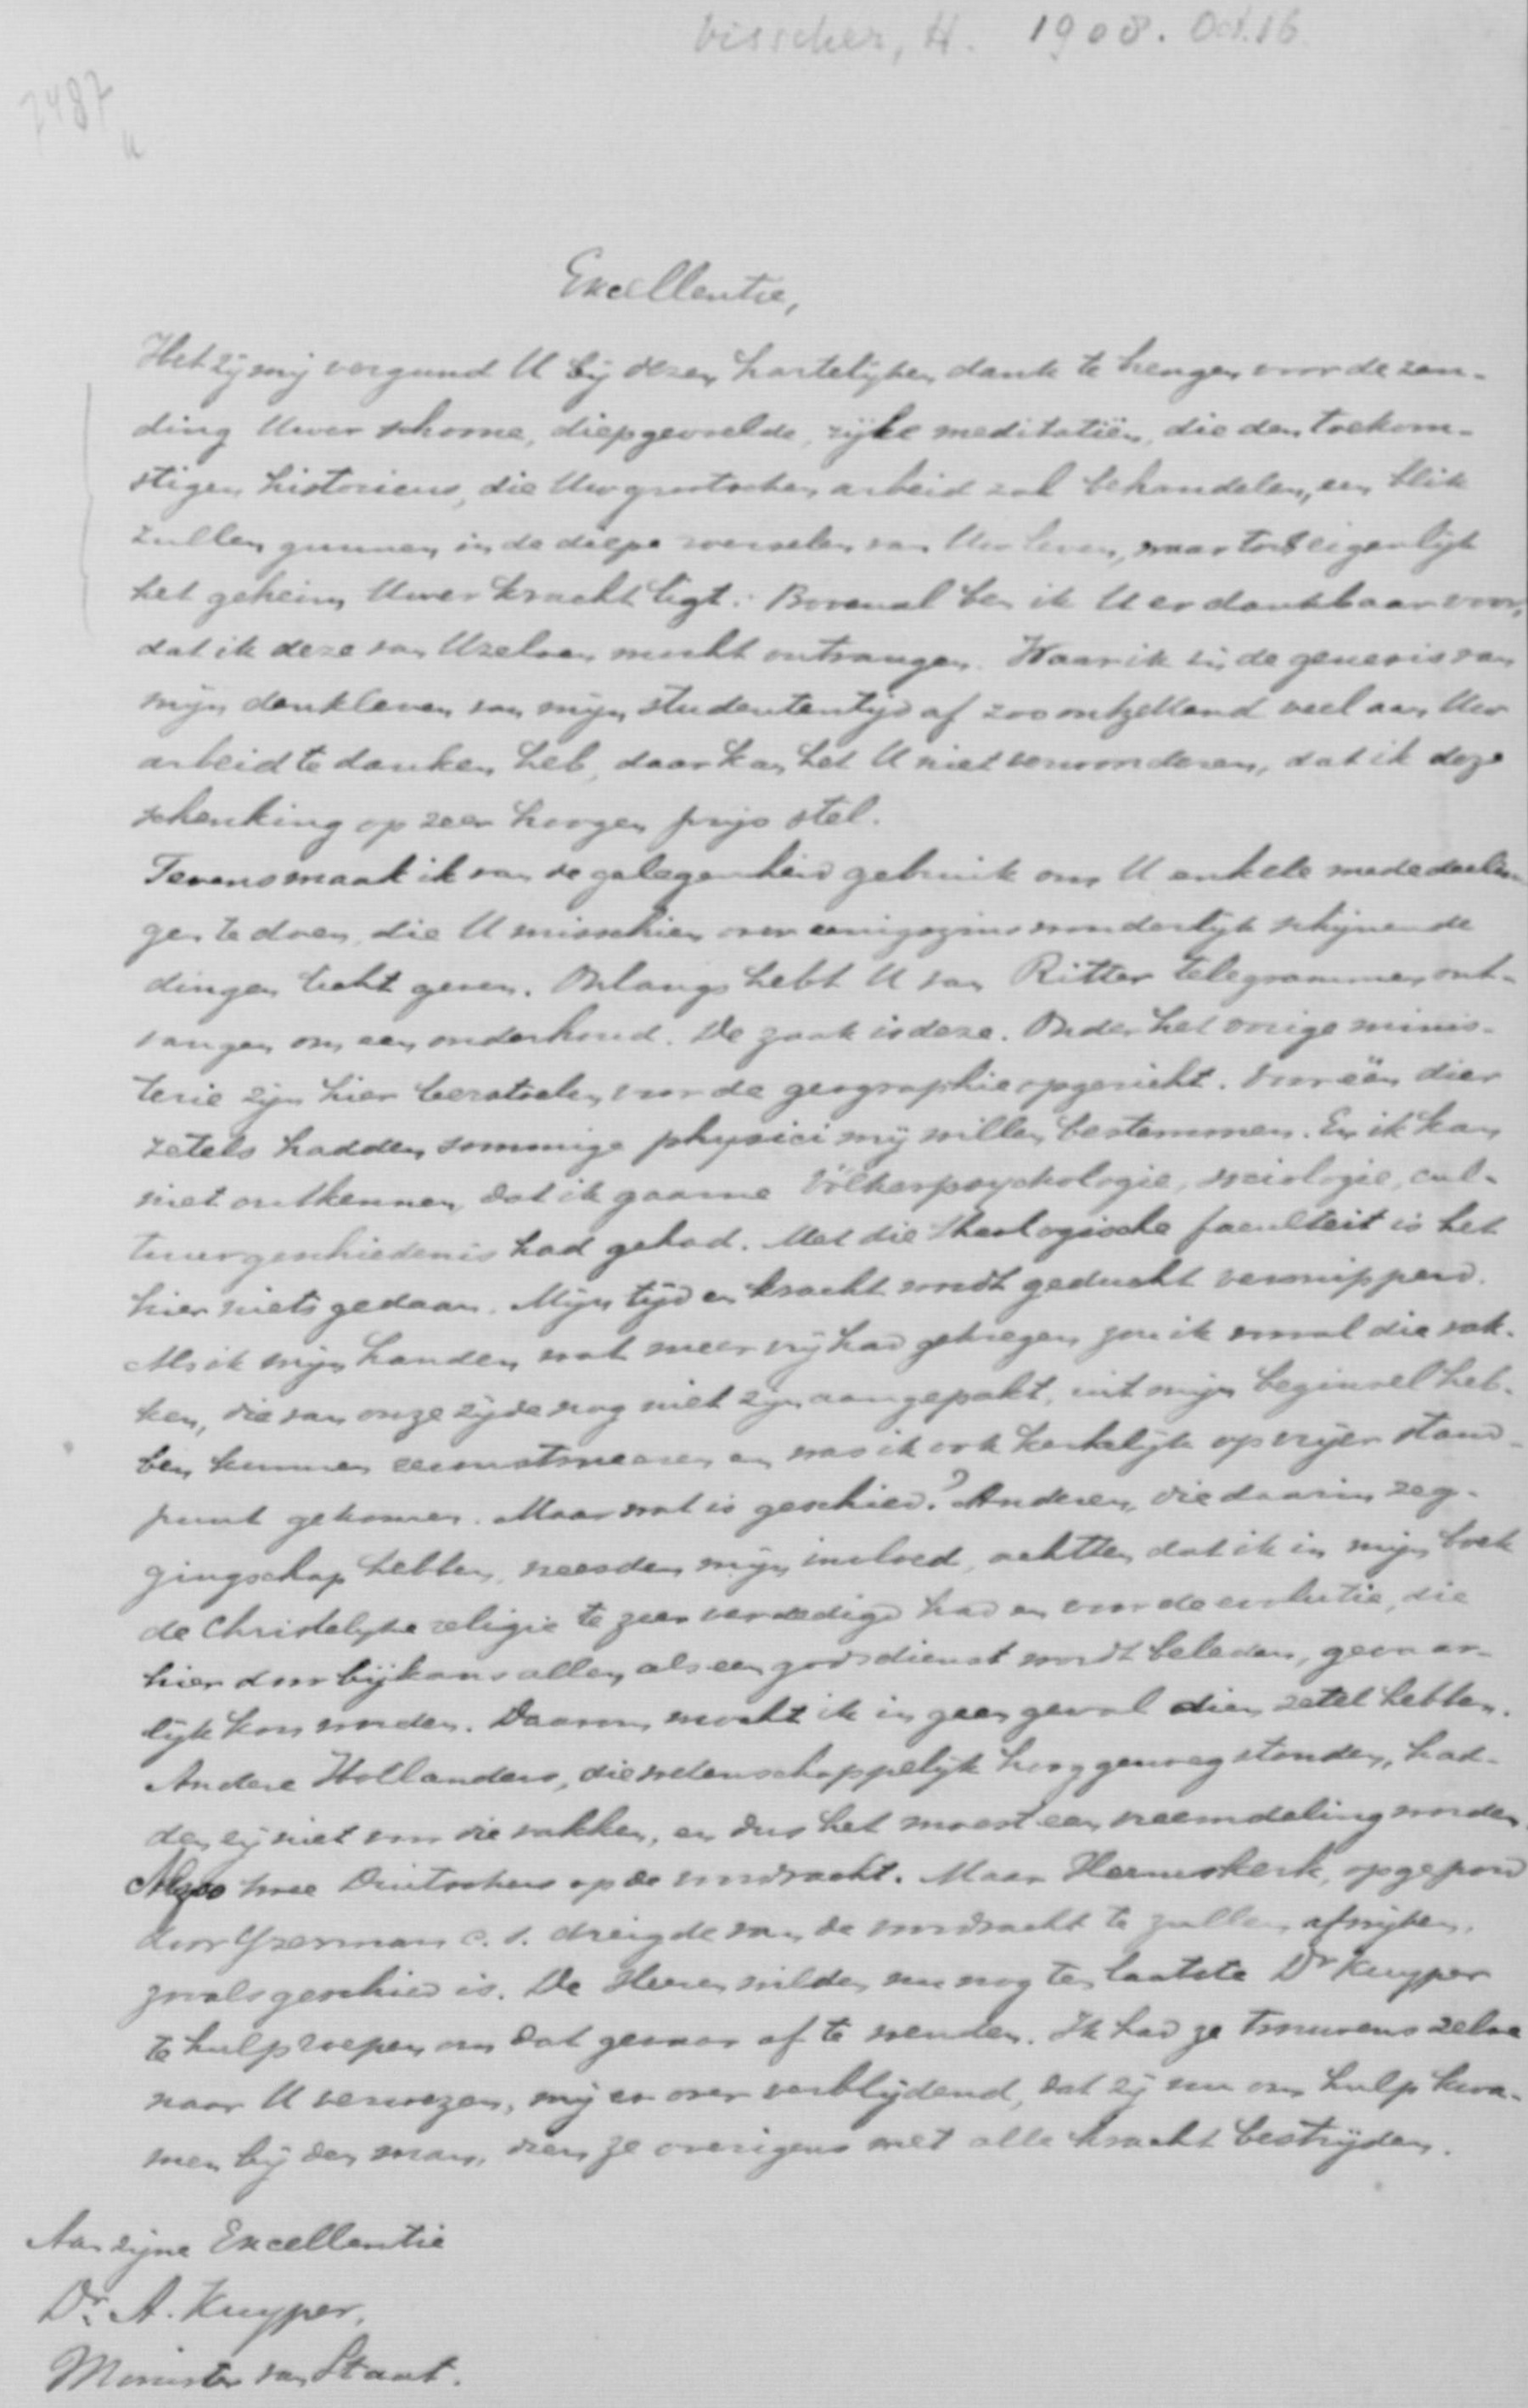 Visscher, H. 1908. Oct. 16
7487
Excellentie,
Het zij mij vergund U bij dezen hartelijken dank te brengen voor de zen-
ding Uwer schoone, diepgevoelde, rijke meditatiën, die den toekom-
stigen historicus, die Uw grootschen arbeid zal behandelen, een blik
zullen gunnen in de diepe wortelen van Uw leven, waar toch eigenlijk
het geheim Uwer kracht ligt. Bovenal ben ik U er dankbaar voor,
dat ik deze van Uzelven mocht ontvangen. Waar ik in de genesis van
mijn denkleven van mijn studententijd af zoo ontzettend veel aan Uw
arbeid te danken heb, daar kan het U niet verwonderen, dat ik deze
schenking op zeer hoogen prijs stel.
Tevens maak ik van de gelegenheid gebruik om U enkele mededeelin-
gen te doen, die U misschien over eenigszins wonderlijk schijnende
dingen licht geven. Onlangs hebt U van Ritter telegrammen ont-
vangen om een onderhoud. De zaak is deze. Onder het vorige minis-
terie zijn hier leerstoelen voor de geographie opgericht. Voor één dier
zetels hadden sommige physici mij willen bestemmen. En ik kan
niet ontkennen, dat ik gaarne Völkerpsychologie, sociologie, cul-
tuurgeschiedenis had gehad. Met die theologische faculteit is het
hier niets gedaan. Mijn tijd en kracht wordt geducht versnipperd.
Als ik mijn handen wat meer vrij had gekregen zou ik vooral die vak-
ken, die van onze zijde nog niet zijn aangepakt, uit mijn beginsel heb-
ben kunnen en was ik ook kerkelijk op vrijer stand-
punt gekomen. Maar wat is geschied? Anderen, die daarin zeg-
gingschap hebben, vreesden mijn invloed, achtten dat ik in mijn boek
de Christelijke religie te zeer verdedigd had en voor de evolutie, die
hier door bijkans allen als een godsdienst wordt beleden, gevaar-
lijk kon worden. Daarom mocht ik in geen geval dien zetel hebben.
Andere Hollanders, die wetenschappelijk hoog genoeg stonden, had-
den zij niet voor die vakken, en dus het moest een vreemdeling worden.
Alzoo twee Duitschers op de voordracht. Maar Heemskerk, opgepord
door IJzerman c.s. dreigde van de voordracht te zullen afwijken,
zooals geschied is. De Heeren wilden nu nog ten laatste Dr Kuyper
te hulp roepen om dat gevaar af te wenden. Ik had ze trouwens zelve
naar U verwezen, mij er over verblijdend, dat zij nu om hulp kwa-
men bij den man, dien ze overigens met alle kracht bestrijden.
Aan zijne Excellentie
Dr. A. Kuyper,
Minister van Staat.